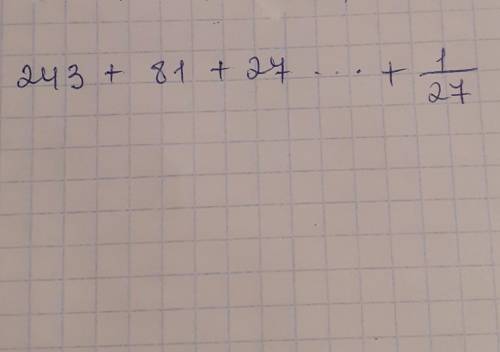 243 + 81 + 27 ... + 1/27